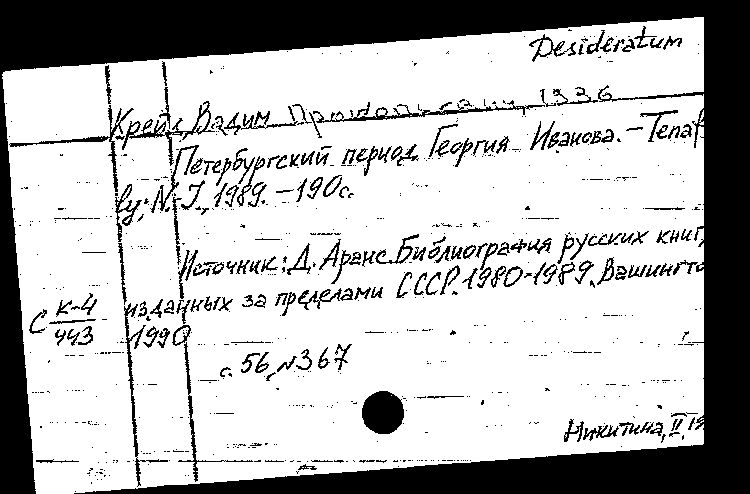 Desideratum
Крейд, Вадим Прокопьевич, 1936
Петербургский период Георгия Иванова. – Tenaf
ly: N.-J., 1989. – 190 с.
Источник: Д. Аранс. Библиография русских книг,
изданных за пределами СССР. 1980-1989. Вашингто
1990
С к-4
443
с. 56, №367
Никитина, II, 19